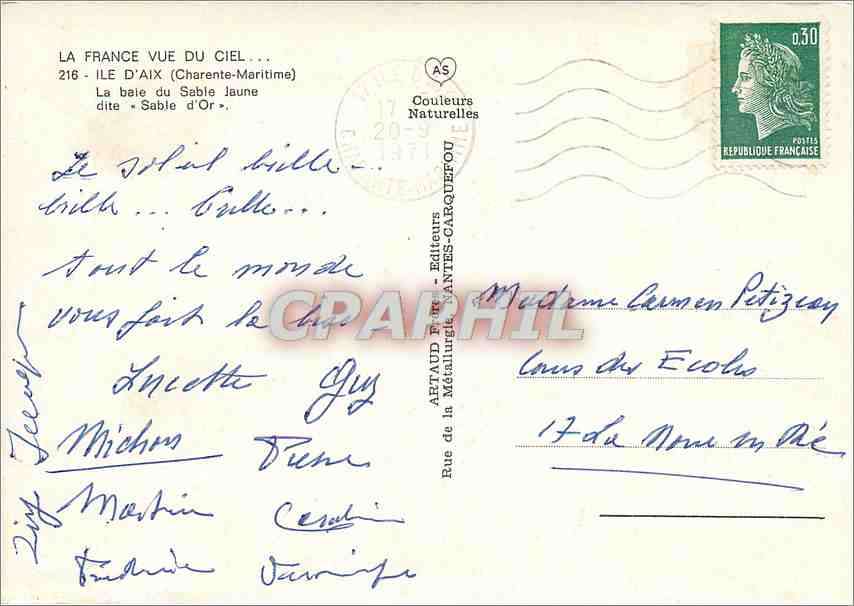 LA FRANCE VUE DU CIEL...
216 - ILE D'AIX (Charente-Maritime)
La baie du Sable Jaune
dite « Sable d'Or ».
AS
Couleurs
Naturelles
17
20-9
1971
0,30
POSTES
REPUBLIQUE FRANÇAISE
Le soleil brille...
brille... brille...
tout le monde
vous fait la
Lucette Guy
Michou Pierre
Martine
ARTAUD Frères - Editeurs
Rue de la Métallurgie, NANTES-CARQUEFOU
CPARHIL
Madame Carmen Petizeau
Cours des Ecoles
17 La Noue en Ré